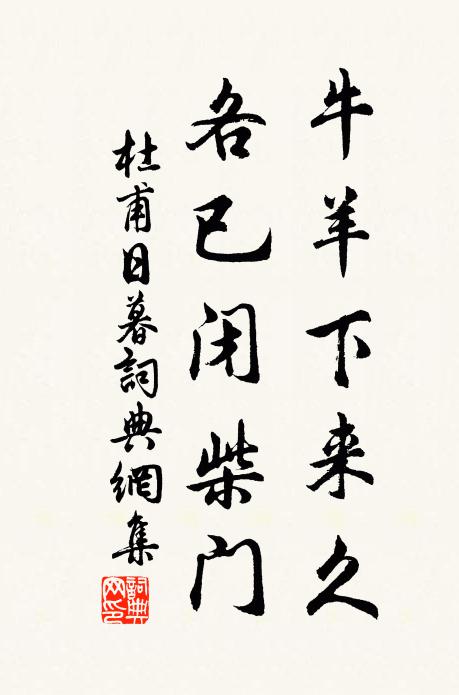 牛羊下来久
各已闭柴门
杜甫日暮詞典網集
詞典网印